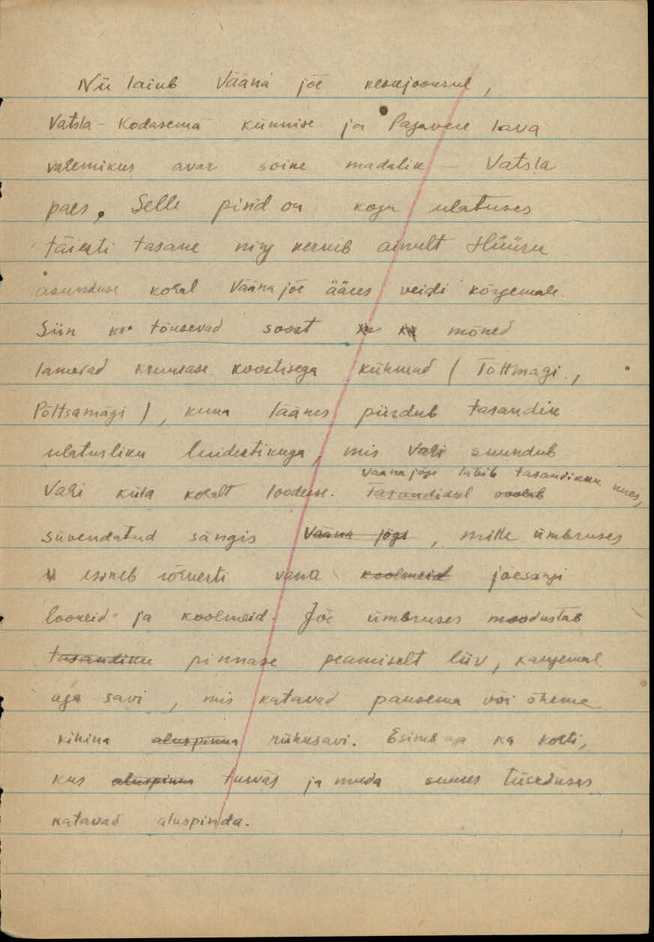 Nii laiub Vääna jõe keskjooksul,
Vatsla-Kodasema künnise ja Pajuvere lava
vahemikus avar soine madalik - Vatsla
paes. Selle pind on kogu ulatuses
täiesti tasane ning kerkib ainult Hüüru
asunduse kohal Vääna jõe ääres veidi kõrgemale.
Siin tõusevad soost mõned
lamedad kruusase koostisega kühmud (Tõttmägi,
Põltsamägi), kuna läänes piirdub tasandik
ulatusliku luidestikuga, mis Vahi suundub
Vahi küla kohalt loodesse. Tasandikul voolab
Vääna jõgi läbib tasandikku uues,
süvendatud sängis Vääna jõgi, mille ümbruses
esineb rohkesti vana koolmeid jõesängi
looneid ja koolmeid. Jõe ümbruses moodustab
tasandiku pinnase peamiselt liiv, kaugemal
aga savi, mis katavad paksema või õhema
kihina aluspinna rähksavi. Esineb aga ka kohti,
kus aluspinna turvas ja muda suures tüseduses
katavad aluspinda.